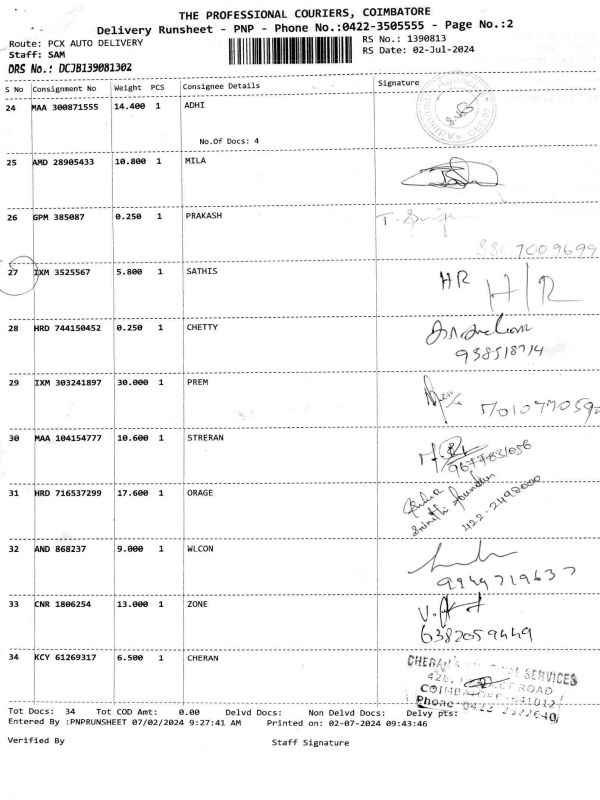 THE PROFESSIONAL COURIERS, COIMBATORE
Delivery Runsheet - PNP - Phone No.:0422-3505555 - Page No.:2
Route: PCX AUTO DELIVERY
RS No.: 1390813
Staff: SAM
RS Date: 02-Jul-2024
DRS No.: DCJB139081302
S No Consignment No Weight PCS Consignee Details Signature
24 MAA 300871555 14.400 1 ADHI
No.Of Docs: 4
25 AMD 28905433 10.800 1 MILA
26 GPM 385087 0.250 1 PRAKASH
7009699
27 IXM 3525567 5.800 1 SATHIS HR H/R
28 HRD 744150452 0.250 1 CHETTY
938518714
29 IXM 303241897 30.000 1 PREM
30 MAA 104154777 10.600 1 STRERAN
31 HRD 716537299 17.600 1 ORAGE
422-2498000
32 AND 868237 9.000 1 WLCON
9949719637
33 CNR 1806254 13.000 1 ZONE
6382059449
34 KCY 61269317 6.500 1 CHERAN
SERVICES
ROAD
Phone
Tot Docs: 34 Tot COD Amt: 0.00 Delvd Docs: Non Delvd Docs: Delvy pts:
Entered By :PNPRUNSHEET 07/02/2024 9:27:41 AM Printed on: 02-07-2024 09:43:46
Verified By Staff Signature